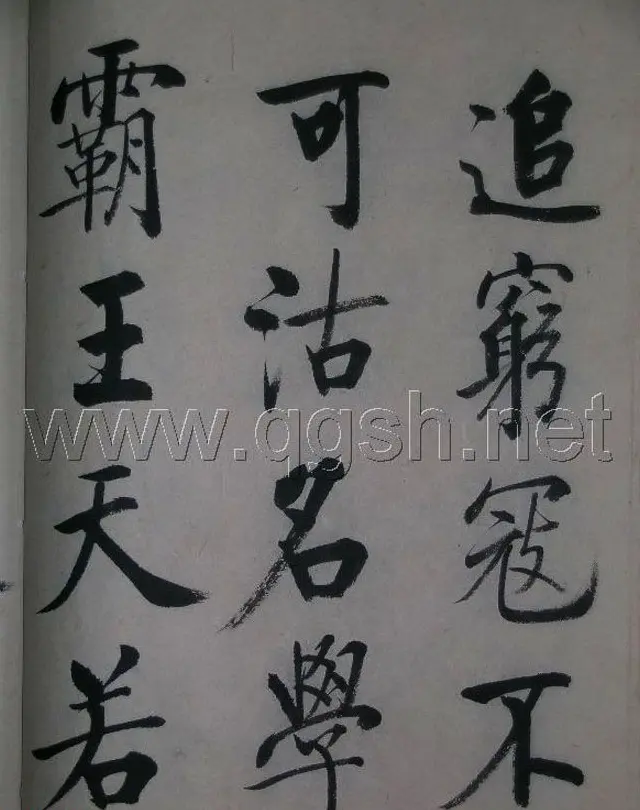 追窮寇不
可沽名學
霸王天若
www.qgsh.net